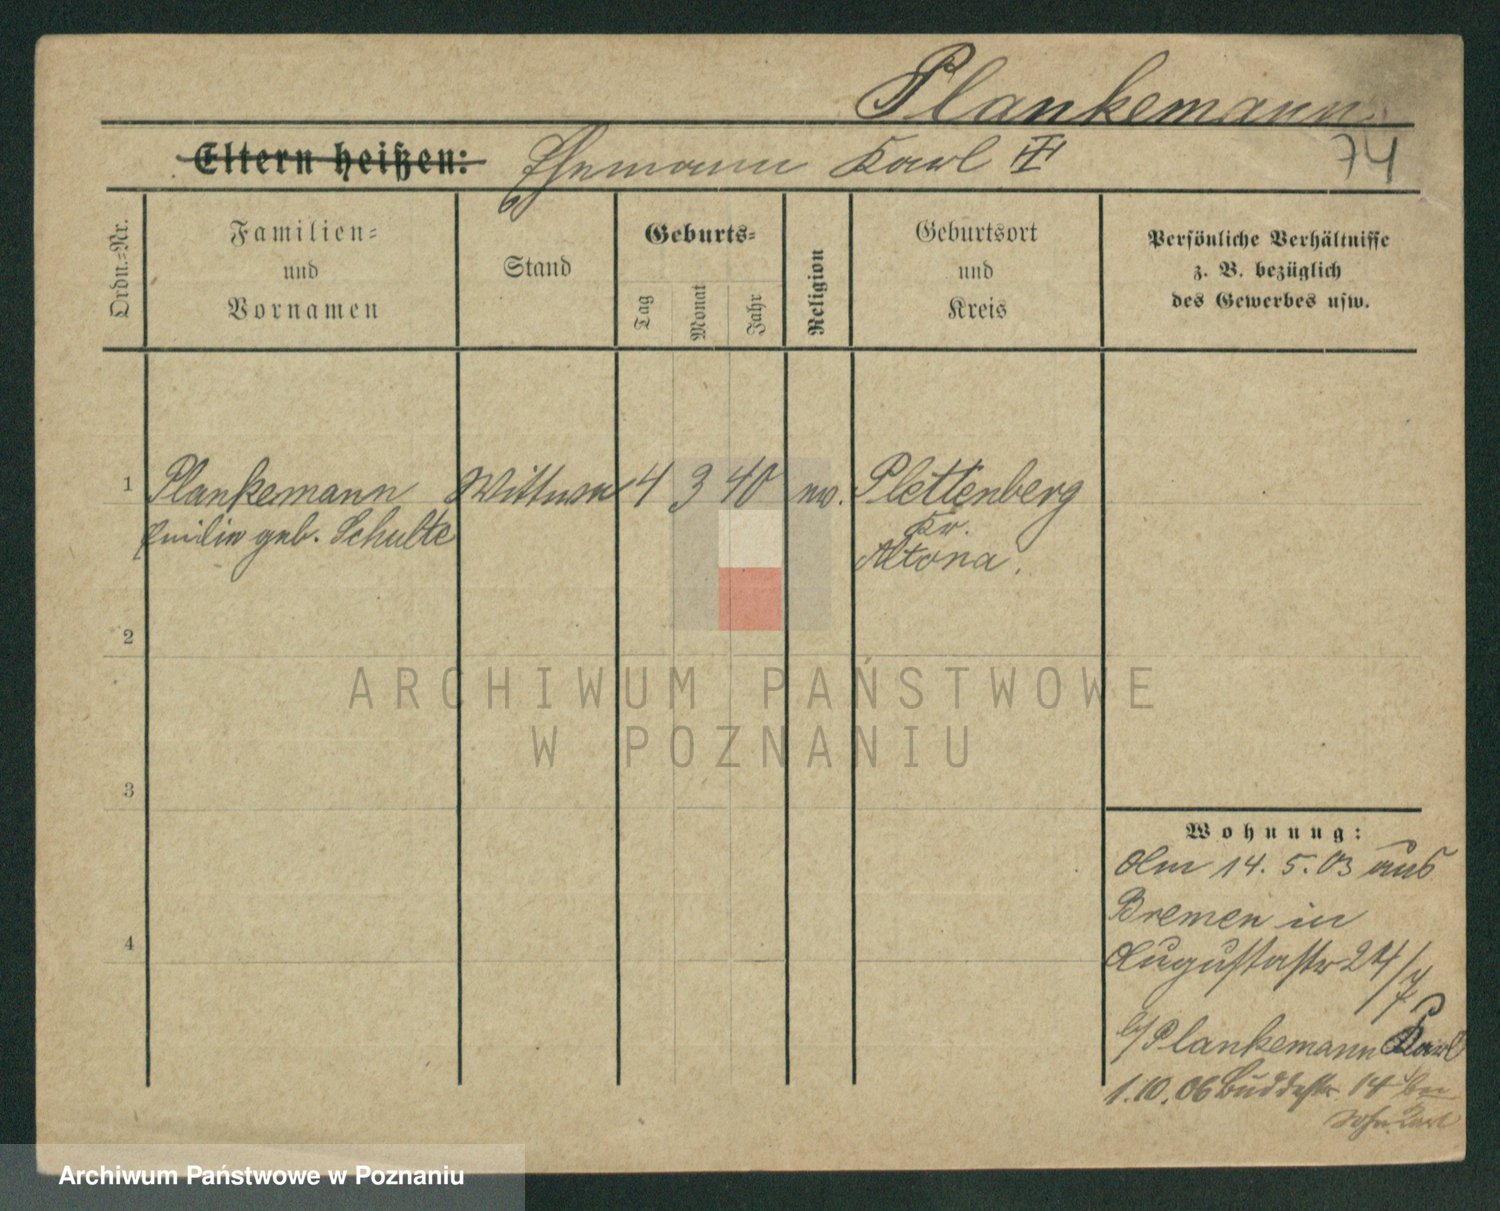 Plankemann
74
Eltern heißen: Ehemann Karl III
Ordn.-Nr.
Familien-
und
Vornamen
Stand
Geburts-
Tag
Monat
Jahr
Religion
Geburtsort
und
Kreis
Persönliche Verhältnisse
z. B. bezüglich
des Gewerbes usw.
1 Plankemann Wittwe 4 3 40 ev. Plettenberg
Emilie geb. Schulte Kr.
Altona.
2
ARCHIWUM PAŃSTWOWE
W POZNANIU
3
Wohnung:
Am 14. 5. 03 aus
Bremen in
4
Augustastr 24/7
b/ Plankemann Karl
1.10.06 Buddestr. 14 bei
Sohn Karl
Archiwum Państwowe w Poznaniu